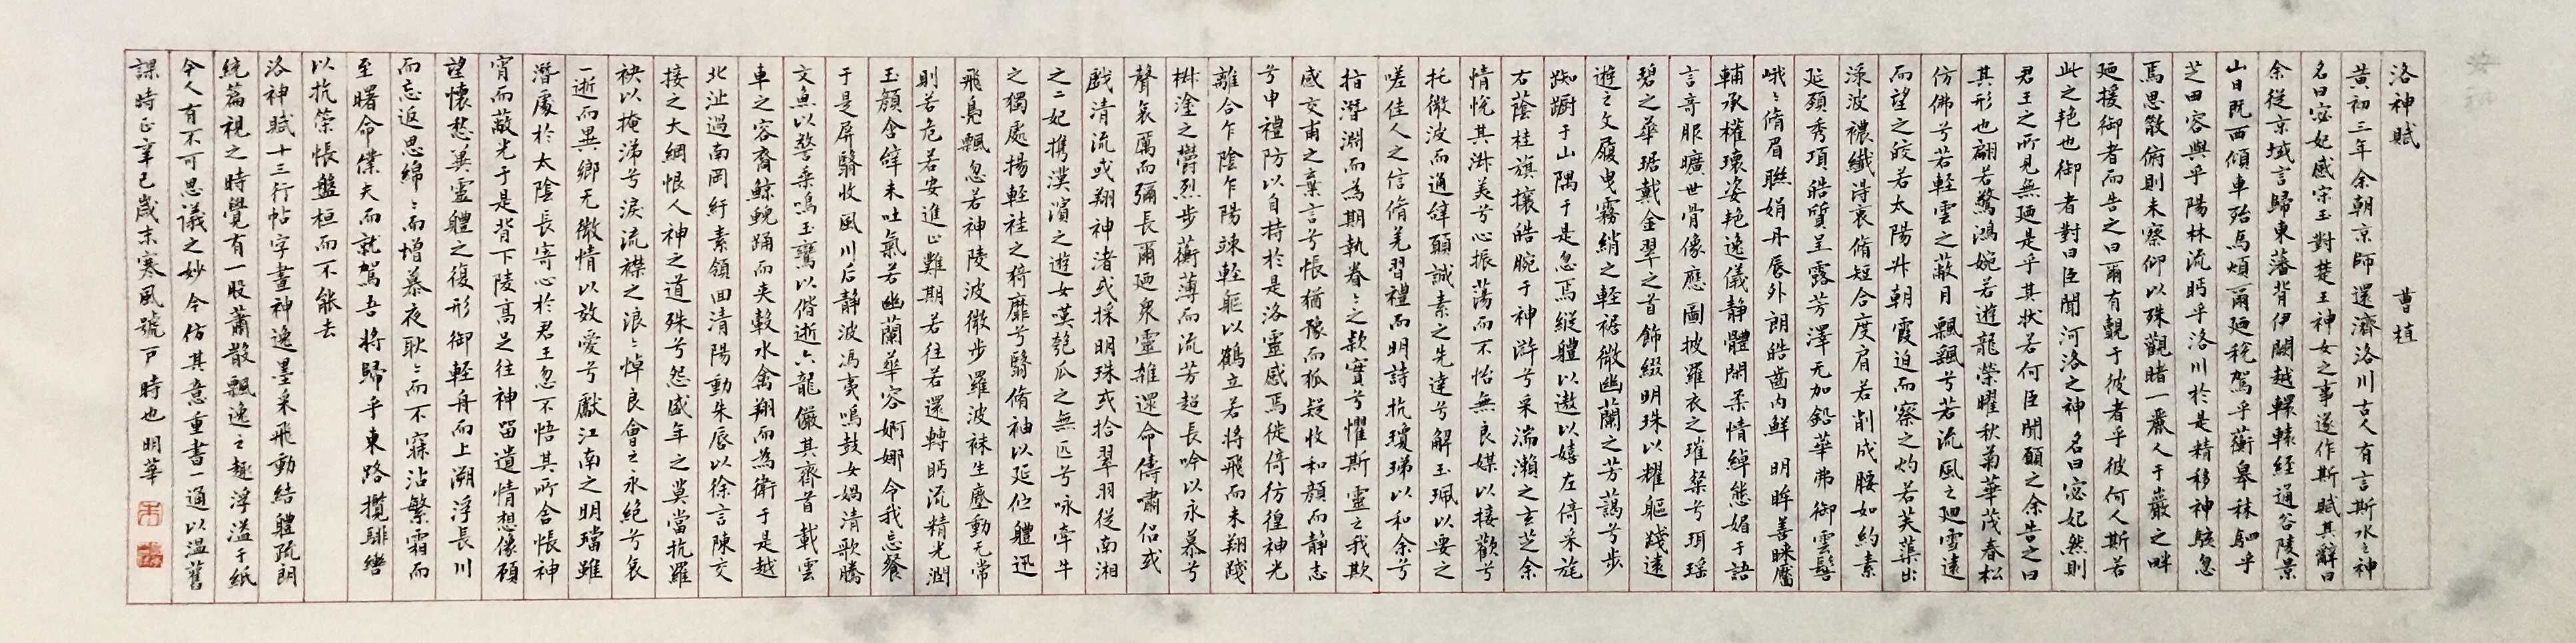 洛神賦　曹植
黃初三年余朝京師還濟洛川古人有言斯水之神
名曰宓妃感宋玉對楚王神女之事遂作斯賦其辭曰
余從京域言歸東藩背伊闕越轘轅經通谷陵景
山日既西傾車殆馬煩爾迺稅駕乎蘅皋秣駟乎
芝田容與乎陽林流眄乎洛川於是精移神駭忽
焉思散俯則未察仰以殊觀睹一麗人于巖之畔
迺援御者而告之曰爾有覿于彼者乎彼何人斯若
此之艳也御者對曰臣聞河洛之神名曰宓妃然則
君王之所見無迺是乎其狀若何臣聞願之余告之曰
其形也翩若驚鴻婉若遊龍榮曜秋菊華茂春松
仿佛兮若輕雲之蔽月飄飄兮若流風之迴雪遠
而望之皎若太陽升朝霞迫而察之灼若芙蕖出
淥波襛纖淂衷脩短合度肩若削成腰如約素
延頸秀項皓質呈露芳澤无加鉛華弗御雲髻
峨〻脩眉聯娟丹唇外朗皓齒内鮮明眸善睞靨
輔承權瓌姿艳逸儀静體閑柔情綽態媚于語
言奇服曠世骨像應圖披羅衣之璀粲兮珥瑶
碧之華琚戴金翠之首飾綴明珠以耀軀踐遠
遊之文履曳霧綃之輕裾微幽蘭之芳藹兮步
踟躕于山隅于是忽焉縱體以遨以嬉左倚采旄
右蔭桂旗攘皓腕于神滸兮采湍瀨之玄芝余
情悅其淑美兮心振蕩而不怡無良媒以接歡兮
托微波而通辭願誠素之先達兮解玉珮以要之
嗟佳人之信脩羌習禮而明詩抗瓊珶以和余兮
指潛淵而為期執眷〻之款實兮懼斯靈之我欺
感交甫之棄言兮悵猶豫而狐疑收和顏而静志
兮申禮防以自持於是洛靈感焉徙倚彷徨神光
離合乍陰乍陽竦輕軀以鶴立若將飛而未翔踐
椒塗之鬱烈步蘅薄而流芳超長吟以永慕兮
聲哀厲而彌長爾迺衆靈雜遝命儔嘯侣或
戲清流或翔神渚或採明珠或拾翠羽從南湘
之二妃携漢濱之遊女嘆匏瓜之無匹兮咏牽牛
之獨處揚輕袿之猗靡兮翳脩袖以延佇體迅
飛鳧飄忽若神陵波微步羅波袜生塵動无常
則若危若安進止難期若往若還轉眄流精光潤
玉顏含辭未吐氣若幽蘭華容婀娜令我忘餐
于是屏翳收風川后静波馮夷鳴鼓女媧清歌騰
文魚以警乘鳴玉鸞以偕逝六龍儼其齊首載雲
車之容裔鯨鯢踊而夹轂水禽翔而為衛于是越
北沚過南岡紆素領回清陽動朱唇以徐言陳交
接之大綱恨人神之道殊兮怨盛年之莫當抗羅
袂以掩涕兮淚流襟之浪〻悼良會之永絕兮哀
一逝而異鄉无微情以效愛兮獻江南之明璫雖
潛處於太陰長寄心於君王忽不悟其所舍悵神
宵而蔽光于是背下陵高足往神留遺情想像顧
望懷愁冀靈體之復形御輕舟而上溯浮長川
而忘返思綿〻而增慕夜耿〻而不寐沾繁霜而
至曙命僕夫而就駕吾將歸乎東路攬騑轡
以抗策悵盤桓而不能去
洛神賦十三行帖字畫神逸墨采飛動結體疏朗
統篇視之時覺有一股蕭散飄逸之趣浮溢于紙
令人有不可思議之妙今仿其意重書一通以温舊
課時正辛已歲末寒風號戶時也明華